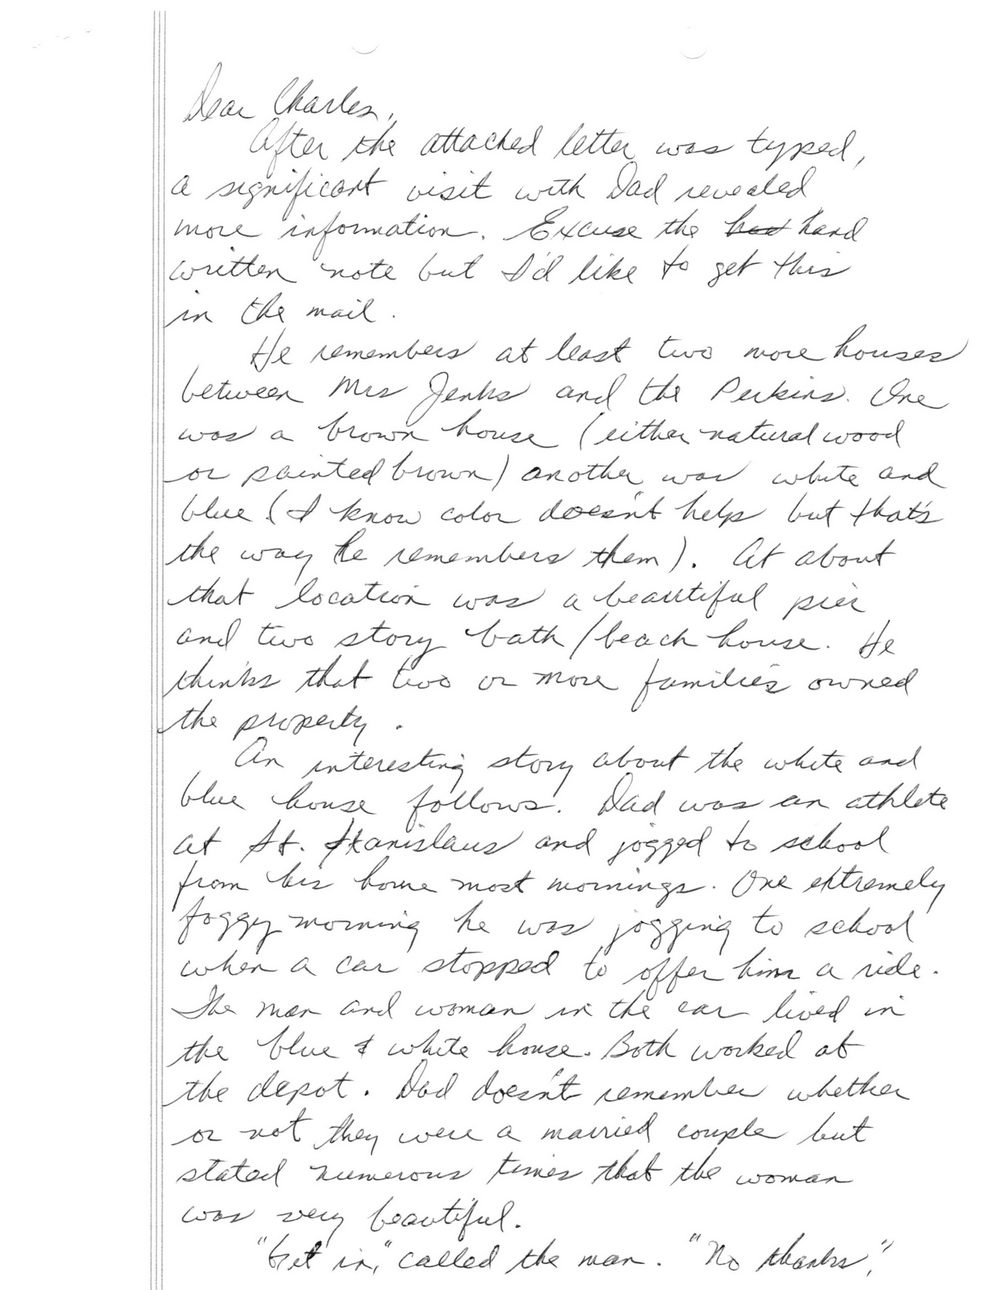 Dear Charles,
After the attached letter was typed,
a significant visit with Dad revealed
more information. Excuse the hand
written note but I'd like to get this
in the mail.
He remembers at least two more houses
between Mrs Jenks and the Perkins. One
was a brown house (either natural wood
or painted brown) another was white and
blue. (I know color doesn't help but that's
the way he remembers them). At about
that location was a beautiful pier
and two story bath/beach house. He
thinks that two or more families owned
the property.
An interesting story about the white and
blue house follows. Dad was an athlete
at St. Stanislaus and jogged to school
from his home most mornings. One extremely
foggy morning he was jogging to school
when a car stopped to offer him a ride.
The man and woman in the car lived in
the blue & white house. Both worked at
the depot. Dad doesn't remember whether
or not they were a married couple but
stated numerous times that the woman
was very beautiful.
"Get in," called the man. "No thanks,"